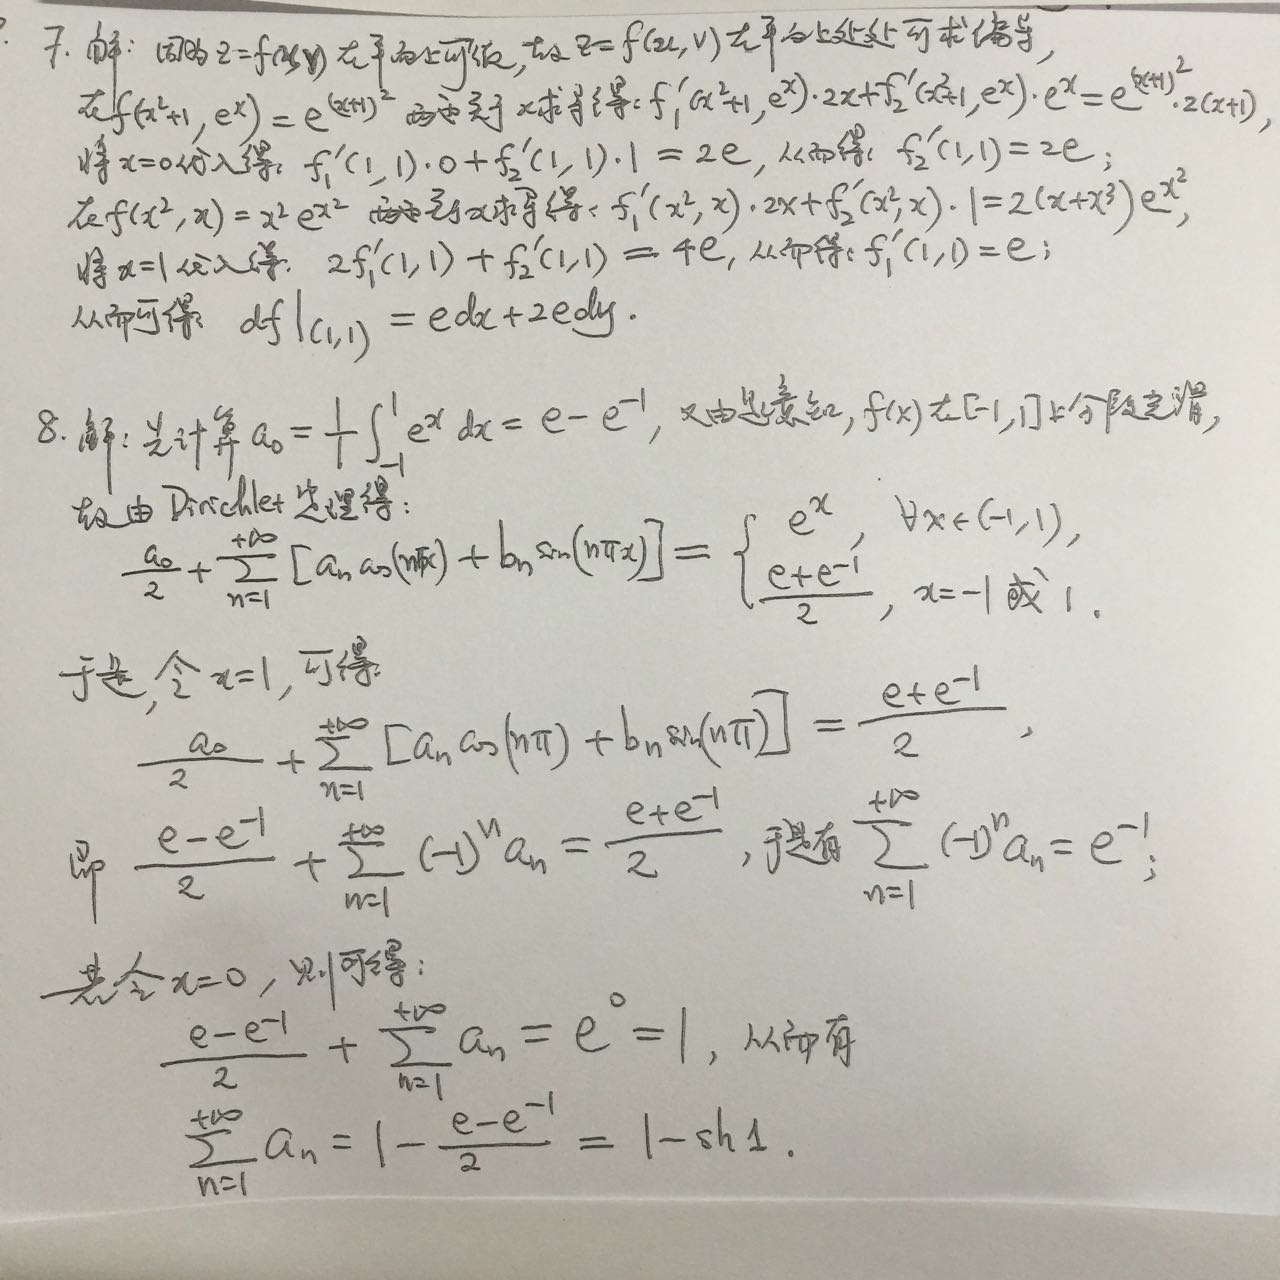 7. 解: 因为z=f(u,v)在平面上可微,故z=f(u,v)在平面上处处可求偏导,
在f(x²+1, eˣ)=e^{(x+1)²} 两边关于x求导得: f₁'(x²+1, eˣ)·2x+f₂'(x²+1, eˣ)·eˣ=e^{(x+1)²}·2(x+1),
将x=0代入得: f₁'(1,1)·0+f₂'(1,1)·1=2e, 从而得: f₂'(1,1)=2e;
在f(x²,x)=x²e^{x²} 两边关于x求导得: f₁'(x²,x)·2x+f₂'(x²,x)·1=2(x+x³)e^{x²},
将x=1代入得: 2f₁'(1,1)+f₂'(1,1)=4e, 从而得: f₁'(1,1)=e;
从而可得: df|₍₁,₁₎=edx+2edy.
8. 解: 先计算 a₀=1/1 ∫₋₁¹ eˣdx=e-e⁻¹, 又由题意知, f(x)在[-1,1]上分段光滑,
故由Dirichlet定理得:
a₀/2+∑_{n=1}^{+∞}[aₙcos(nπx)+bₙsin(nπx)]={ eˣ, ∀x∈(-1,1),
(e+e⁻¹)/2, x=-1或1.
于是,令x=1,可得:
a₀/2+∑_{n=1}^{+∞}[aₙcos(nπ)+bₙsin(nπ)]=(e+e⁻¹)/2,
即 (e-e⁻¹)/2+∑_{n=1}^{+∞}(-1)ⁿaₙ=(e+e⁻¹)/2, 于是有 ∑_{n=1}^{+∞}(-1)ⁿaₙ=e⁻¹;
若令x=0, 则可得:
(e-e⁻¹)/2+∑_{n=1}^{+∞}aₙ=e⁰=1, 从而有
∑_{n=1}^{+∞}aₙ=1-(e-e⁻¹)/2=1-sh1.